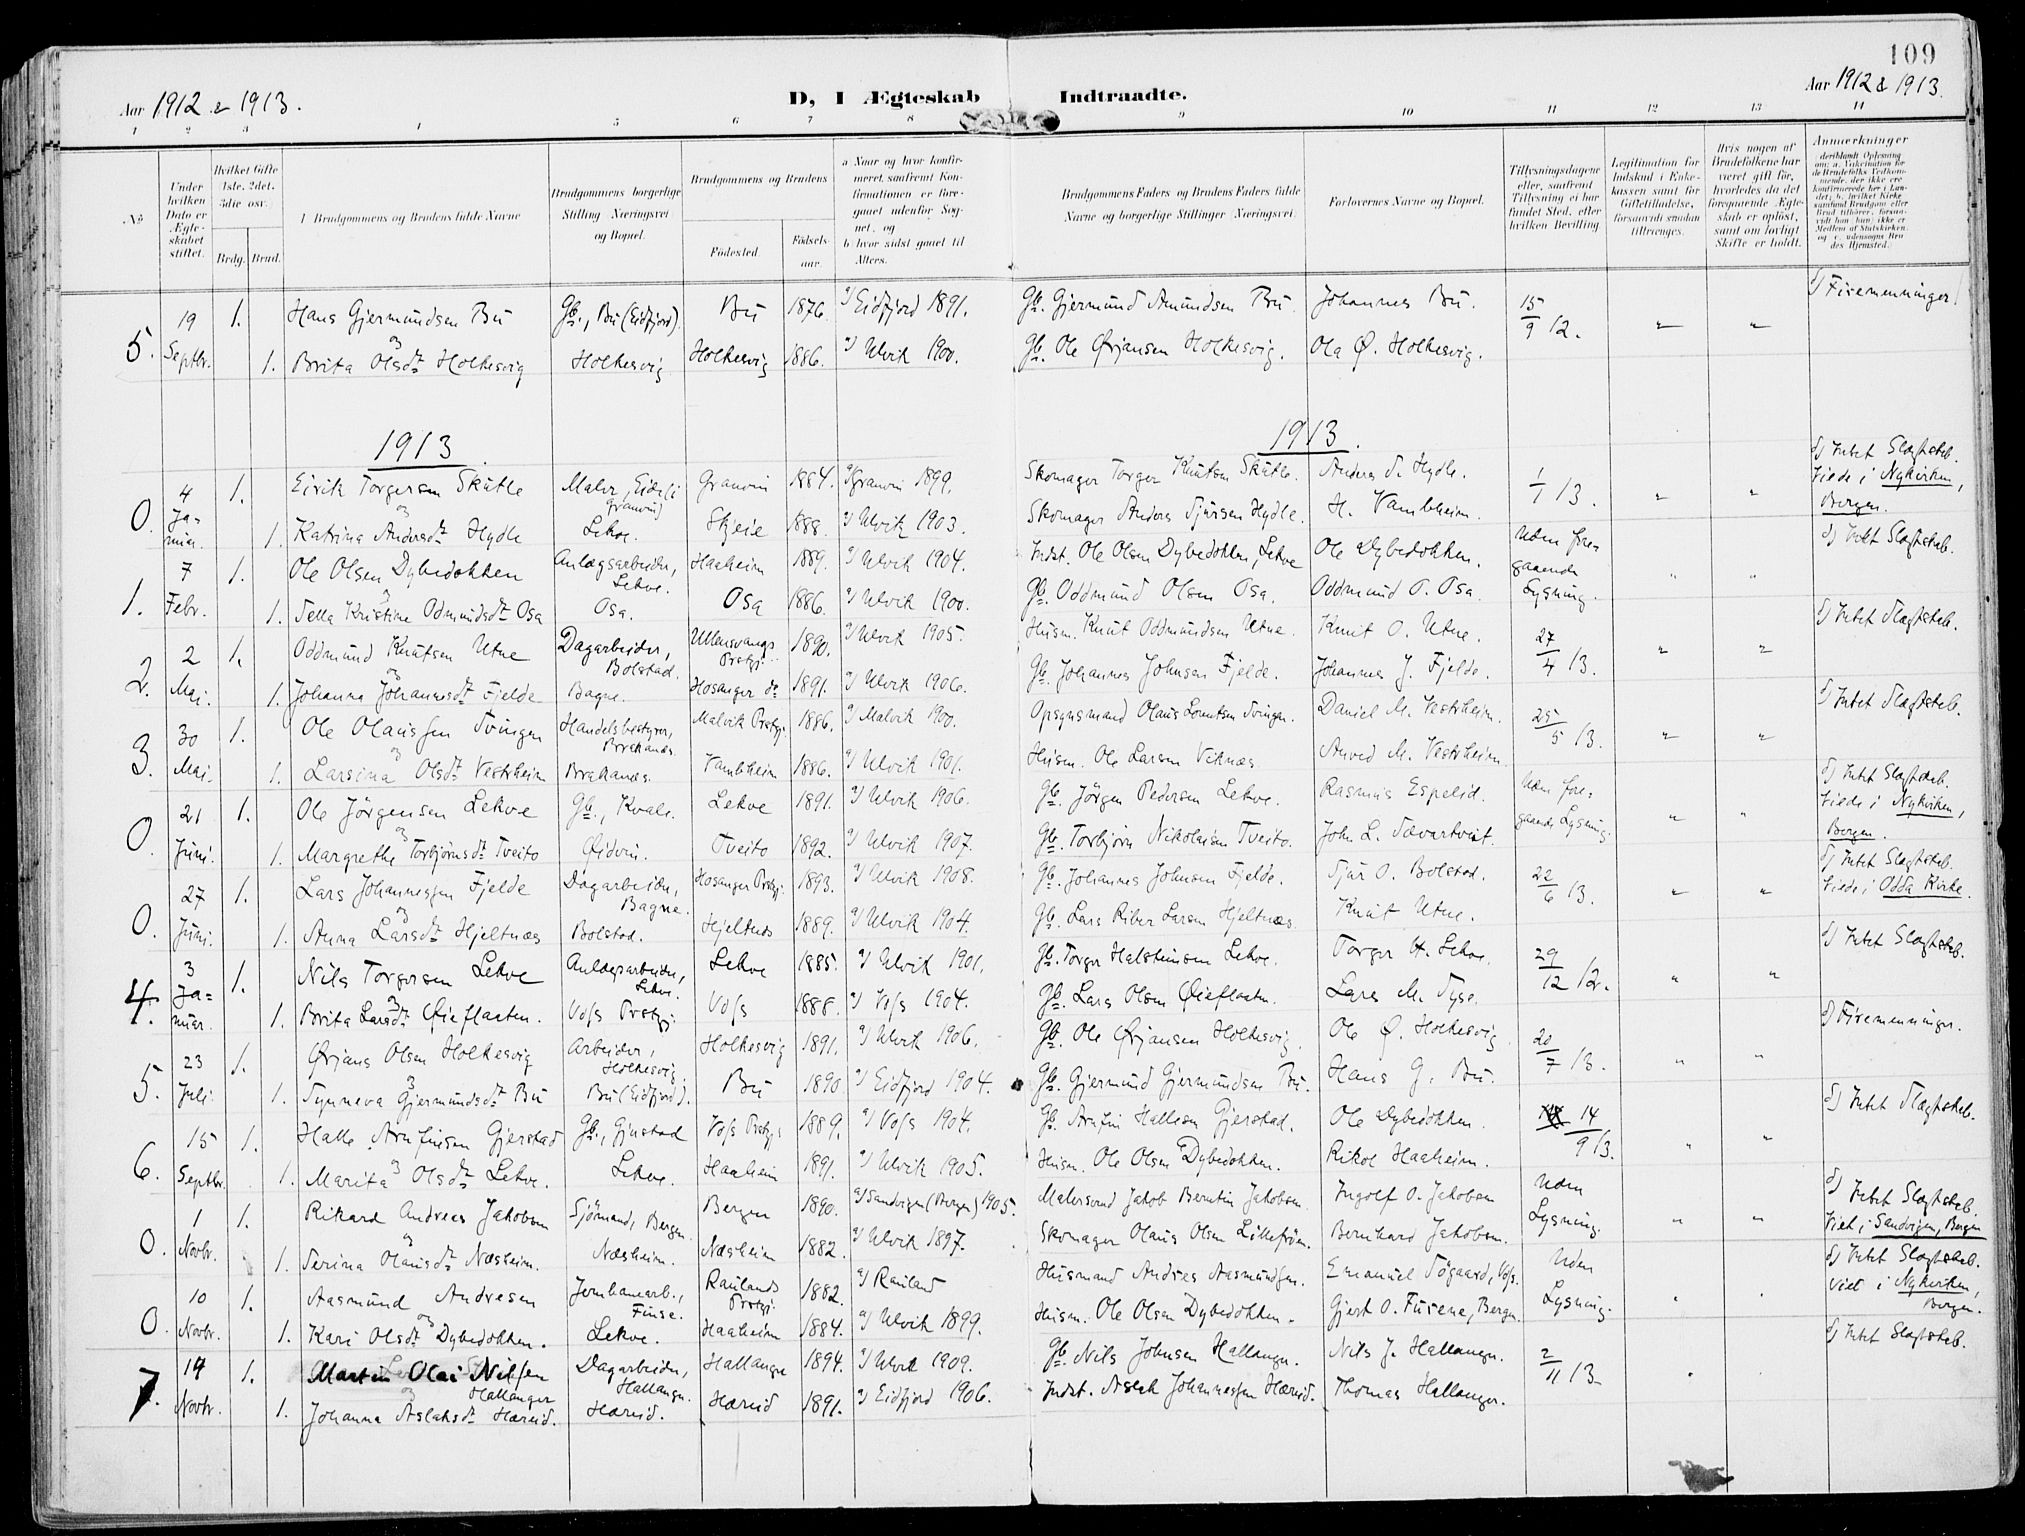 109
Aar 1912 & 1913.
D, I Ægteskab Indtraadte.
Aar 1912 & 1913.
1 2 3 4 5 6 7 8 9 10 11 12 13 14
No
Under hvilken Dato er Ægteskabet stiftet.
Hvilket Gifte 1ste. 2det. 3die osv.
Brdg. Brud.
Brudgommens og Brudens fulde Navne
Brudgommens borgerlige Stilling Næringsvei og Bopæl.
Brudgommens og Brudens
Fødested
Fødselsaar.
a Naar og hvor konfirmeret, saafremt Konfirmationen er foregaaet udenfor Sognet, og
b hvor sidst gaaet til Alters.
Brudgommens Faders og Brudens Faders fulde Navne og borgerlige Stillinger Næringsvei.
Forlovernes Navne og Bopæl.
Tillysningsdagene eller, saafremt Tillysning ei har fundet Sted, efter hvilken Bevilling
Legitimation for Indskud i Enkekassen samt for Giftetilladelse, forsaavidt saadan tiltrænges.
Hvis nogen af Brudefolkene har været gift før, hvorledes da det foregaaende Ægteskab er opløst, samt om lovligt Skifte er holdt.
Anmærkninger
5. 19 Septbr. 1. Hans Gjermundsen Bu Gb., Bu (Eidfjord). Bu 1876. a) Eidfjord 1891. Gb. Gjermund Amundsen Bu. Johannes Bu. 15/9 12. " " d) Firemenninger.
og
1. Brita Olsdt Holkesvig Holkesvig Holkesvig 1886. a) Ulvik 1900. Gb. Ole Ørjansen Holkesvig. Ola Ø. Holkesvig.
1913 1913.
0. 4 Januar. 1. Eirik Torgersen Skutle Maler, Eide (i Granvin) Granvin 1884. a) Granvin 1899. Skomager Torger Knutsen Skutle. Anders S. Hydle. 1/1 13. " " d) Intet Slægtskab. Viede i Nykirken, Bergen.
og
1. Katrina Andersdt Hydle Lekve. Skeie 1888. a) Ulvik 1903. Skomager Anders Sjursen Hydle. H. Vambheim.
1. 7 Febr. 1. Ole Olsen Dybedokken Anlægsarbeider, Lekve. Haaheim 1889. a) Ulvik 1904. Indst. Ole Olsen Dybedokken, Lekve Ole Dybedokken. Uden foregaaende Lysning. " " d) Intet Slægtskab.
og
1. Sella Kristine Odmundsdt Osa Osa. Osa 1886. a) Ulvik 1900. Gb. Oddmund Olsen Osa. Oddmund O. Osa.
2. 2 Mai. 1. Oddmund Knutsen Utne Dagarbeider, Bolstad. Ullensvangs Prstgj. 1890. a) Ulvik 1905. Husm. Knut Oddmundsen Utne. Knut O. Utne. 27/4 13. " " d) Intet Slægtskab.
og
1. Johanna Johannesdt Fjelde Bagne. Hosanger do 1891. a) Ulvik 1906. Gb. Johannes Johnsen Fjelde. Johannes J. Fjelde.
3. 30 Mai. 1. Ole Olaussen Svingen Handelsbestyrer, Brakanæs. Malvik Prstgj. 1886. a) Malvik 1900. Opsynsmand Olaus Svingen. Daniel M. Vestrheim. 25/5 13. " " d) Intet Slægtskab.
og
1. Larsina Olsdt Vestrheim Brakanæs. Vambheim 1886. a) Ulvik 1901. Husm. Ole Larsen Viknæs. M. Vestrheim.
0. 21 Juni. 1. Ole Jörgensen Lekve Gb., Kvale. Lekve 1891. a) Ulvik 1906. Gb. Jörgen Pedersen Lekve. Rasmus Espelid. Uden foregaaende Lysning. " " d) Intet Slægtskab. Viede i Nykirken, Bergen.
og
1. Margrethe Torbjörnsdt Tveito Øidvin. Tveito 1892. a) Ulvik 1907. Gb. Torbjörn Nikolaisen Tveito. John L. Sævartveit.
0. 27 Juni. 1. Lars Johannessen Fjelde Dagarbeider, Bagne. Hosanger Prstgj. 1893. a) Ulvik 1908. Gb. Johannes Johnsen Fjelde. Sjur O. Bolstad. 22/6 13. " " d) Intet Slægtskab. Viede i Odda Kirke.
og
1. Anna Larsdt Hjeltnæs Bolstad. Hjeltnæs 1889. a) Ulvik 1904. Gb. Lars Riber Larsen Hjeltnæs Knut Utne.
4. 3 Januar. 1. Nils Torgersen Lekve Anlægsarbeider, Lekve. Lekve 1885. a) Ulvik 1901. Gb. Torger Halsteinsen Lekve. Torger H. Lekve. 29/12 12. " " d) Intet Slægtskab.
og
1. Brita Larsdt Øieflaaten. Voss Prstgj. Voss 1888. a) Voss 1904. Gb. Lars Olsen Øieflaaten. Lars M. Tyse.
5. 23 Juli. 1. Ørjans Olsen Holkesvig Arbeider, Holkesvig. Holkesvig 1891. a) Ulvik 1906. Gb. Ole Ørjansen Holkesvig. Ole Ø. Holkesvig 20/7 13. " " d) Firemenninger.
og
1. Synneva Gjermundsdt Bu Bu (Eidfjord). Bu 1890 a) Eidfjord 1904. Gb. Gjermund Gjermundsen Bu. Hans G. Bu.
6. 15 Septbr. 1. Halle Arnfinsen Gjerstad Gb., Gjerstad Voss Prstgj. 1889. a) Voss 1904. Gb. Arnfin Hallesen Gjerstad. Ole Dybedokken. 14/9 13. " " d) Intet Slægtskab.
og
1. Marita Olsdt Lekve. Lekve. Haaheim 1891. a) Ulvik 1905. Husm. Ole Olsen Dybedokken. Rikol Haaheim.
0. 1 Novbr. 1. Rikard Andreas Jakobsen Sjömand, Bergen. Bergen 1890. a) Sandvigen (Bergen) 1905. Malersvend Jakob Berntin Jakobsen Ingolf O. Jakobsen Uden Lysning. " " d) Intet Slægtskab. Viet i Sandvigen, Bergen
og
1. Serina Olausdt Næsheim. Næsheim. Næsheim 1882. a) Ulvik 1897. Skomager Olaus Olsen Bernhard Jakobsen.
0. 10 Novbr. 1. Aasmund Andresen Jernbanearb., Finse. Raulands Prstgj. 1882. a) Rauland Husmand Andres Aasmundsen. Emanuel Voss. Uden Lysning. " " d) Intet Slægtskab. Viet i Nykirken, Bergen.
og
1. Kari Olsdt Dybedokken. Lekve. Haaheim 1884. a) Ulvik 1899. Husm. Ole Olsen Dybedokken. Gjert O. Furene, Bergen.
7. 14 Novbr. 1. Martin Olai Nilssen Hallanger Dagarbeider, Hallanger. Hallanger 1894. a) Ulvik 1909. Gb. Nils Johnsen Hallanger. Nils J. Hallanger. 2/11 13. " d) Intet Slægtskab.
og
1. Johanna Aslaksdt Hæreid. Hæreid. Hæreid 1891. a) Eidfjord 1906. Indst. Aslak Johannessen Hæreid. Thomas Hallanger.